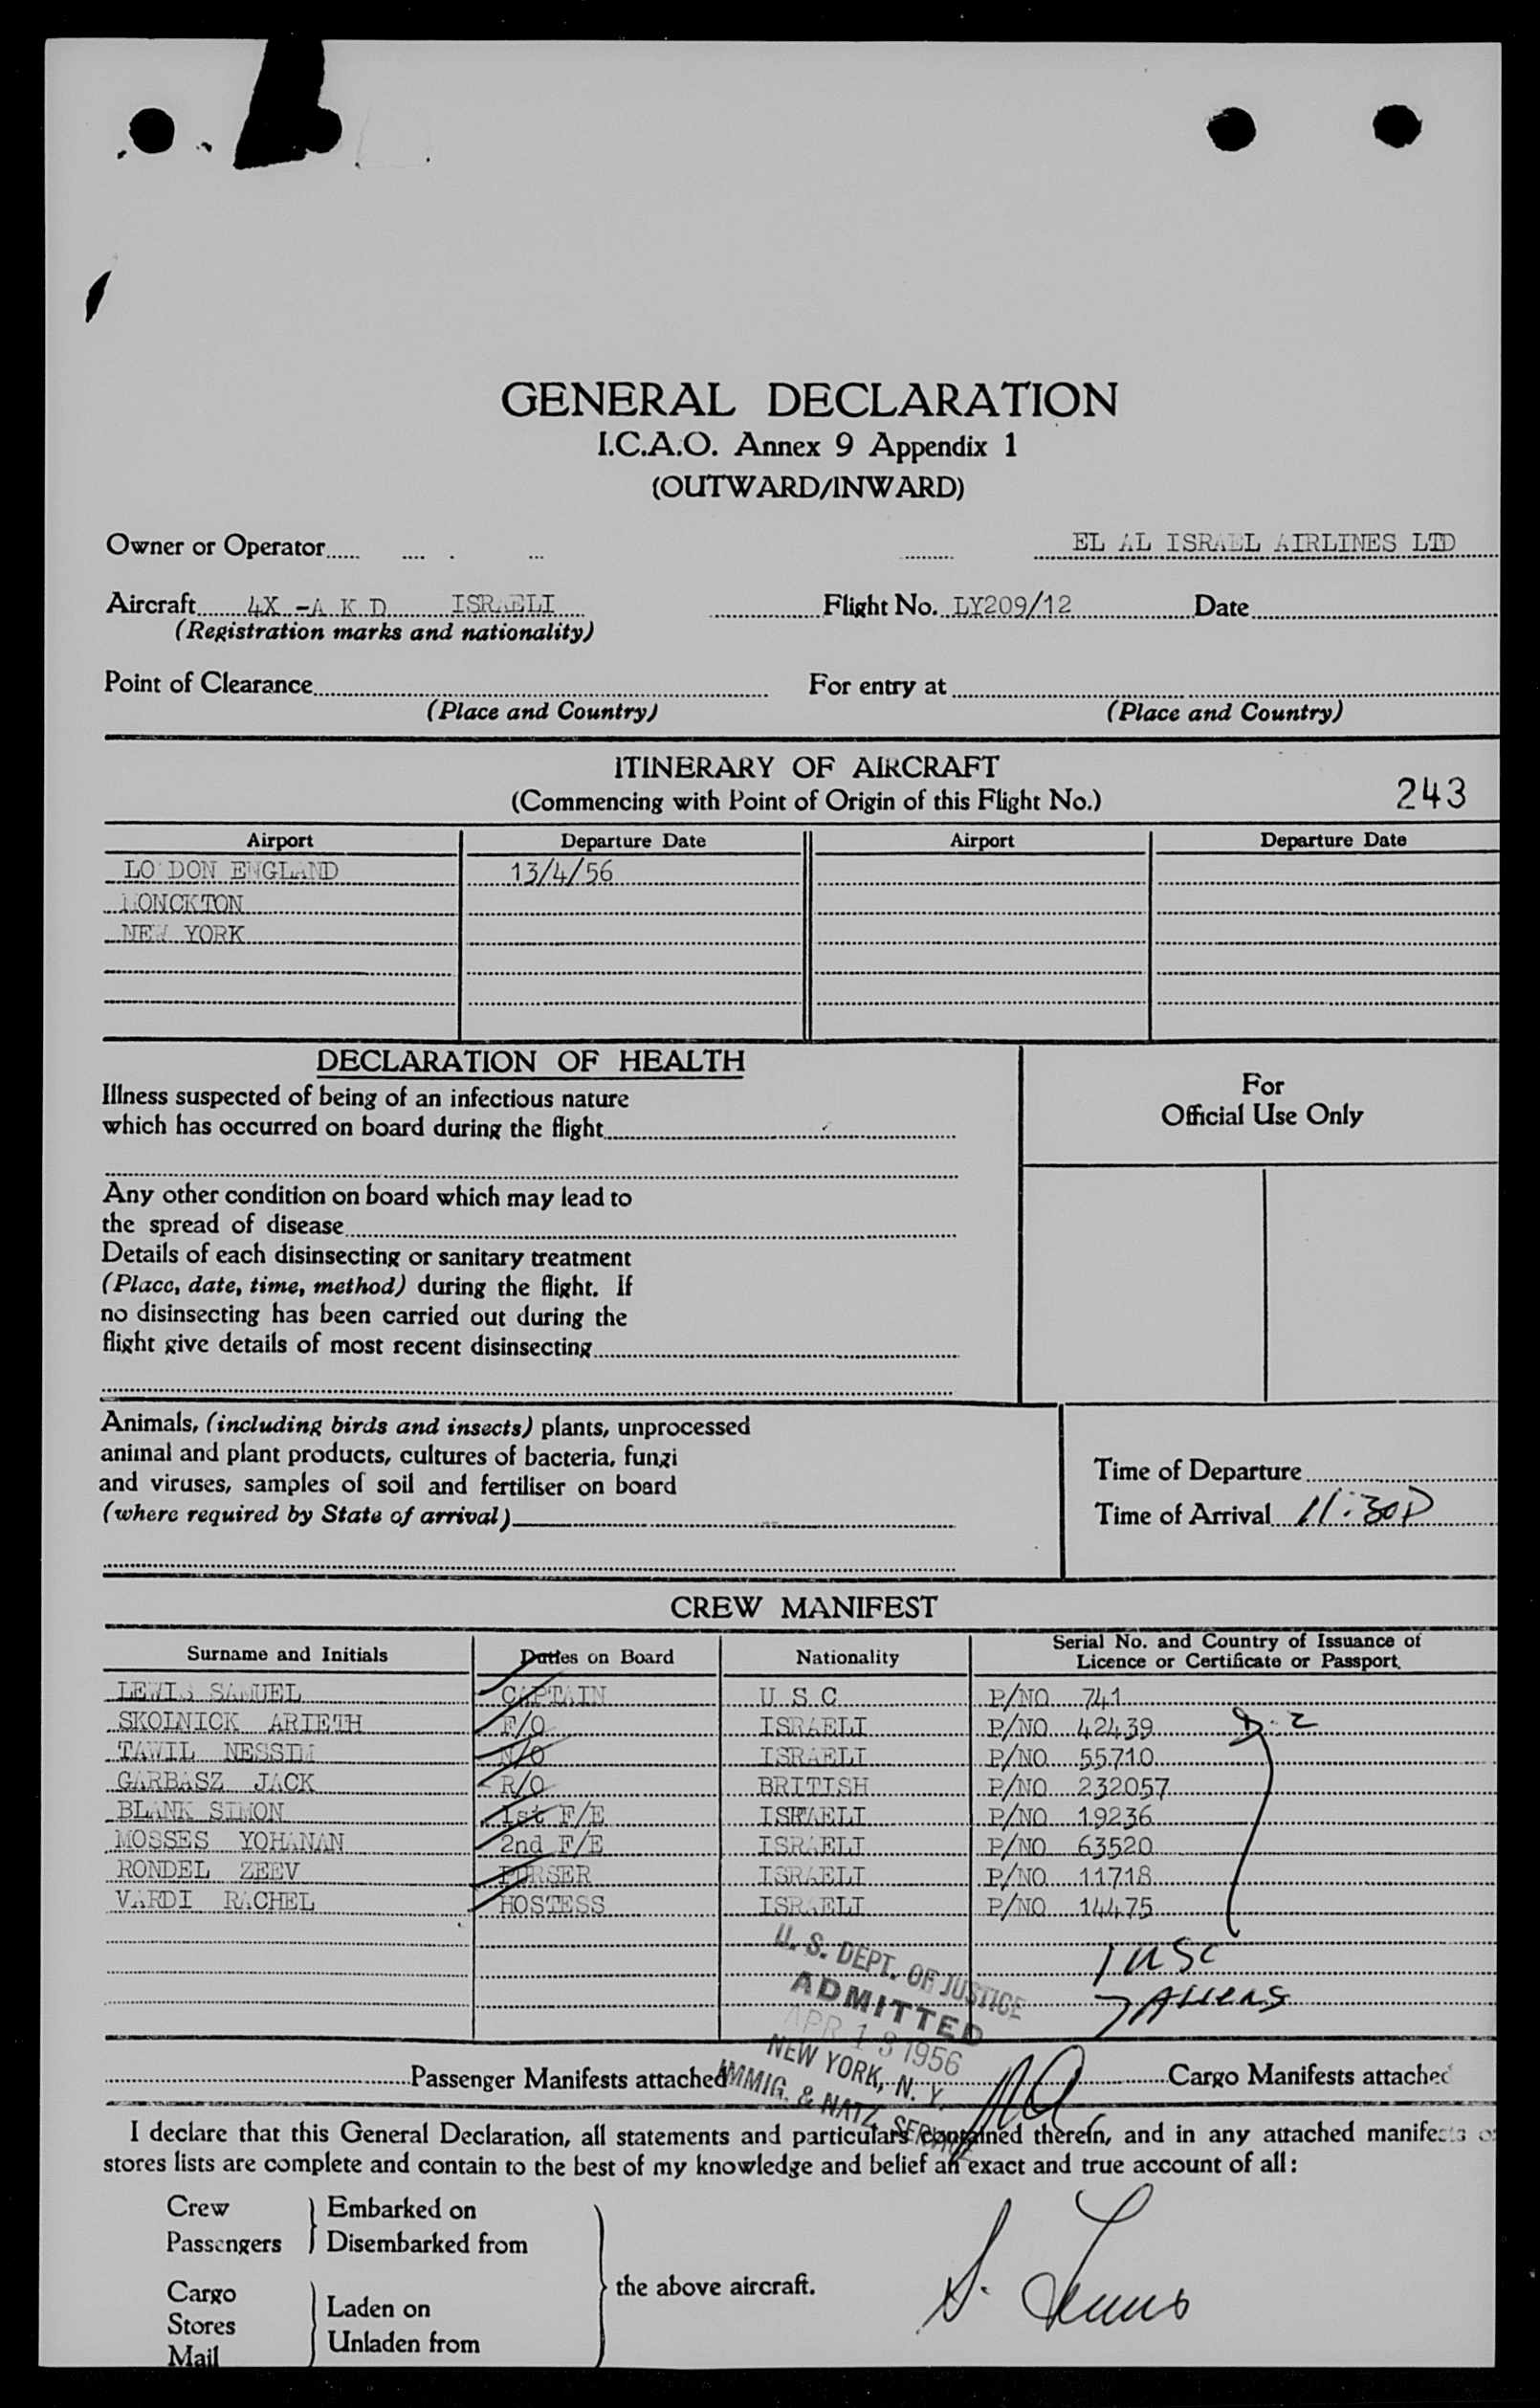 GENERAL DECLARATION
I.C.A.O. Annex 9 Appendix 1
(OUTWARD/INWARD)
Owner or Operator EL AL ISRAEL AIRLINES LTD
Aircraft 4X -A K D ISRAELI Flight No. LY209/12 Date
(Registration marks and nationality)
Point of Clearance For entry at
(Place and Country) (Place and Country)
ITINERARY OF AIRCRAFT
(Commencing with Point of Origin of this Flight No.) 243
Airport Departure Date Airport Departure Date
LONDON ENGLAND 13/4/56
MONCKTON
NEW YORK
DECLARATION OF HEALTH
Illness suspected of being of an infectious nature
which has occurred on board during the flight
For
Official Use Only
Any other condition on board which may lead to
the spread of disease
Details of each disinsecting or sanitary treatment
(Place, date, time, method) during the flight. If
no disinsecting has been carried out during the
flight give details of most recent disinsecting
Animals, (including birds and insects) plants, unprocessed
animal and plant products, cultures of bacteria, fungi
and viruses, samples of soil and fertiliser on board
(where required by State of arrival)
Time of Departure
Time of Arrival 11:30P
CREW MANIFEST
Surname and Initials Duties on Board Nationality Serial No. and Country of Issuance of Licence or Certificate or Passport.
LEWIS SAMUEL CAPTAIN U S C P/NO 741
SKOLNICK ARIETH F/O ISRAELI P/NO 42439 D-2
TAWIL NESSIM N/O ISRAELI P/NO 55710
GARBASZ JACK R/O BRITISH P/NO 232057
BLANK SIMON 1st F/E ISRAELI P/NO 19236
MOSSES YOHANAN 2nd F/E ISRAELI P/NO 63520
RONDEL ZEEV PURSER ISRAELI P/NO 11718
VARDI RACHEL HOSTESS ISRAELI P/NO 14475
1 USC
7 Aliens
U. S. DEPT. OF JUSTICE
ADMITTED
APR 13 1956
NEW YORK, N. Y.
IMMIG. & NATZ. SERVICE
Passenger Manifests attached Cargo Manifests attached
I declare that this General Declaration, all statements and particulars contained therein, and in any attached manifests or
stores lists are complete and contain to the best of my knowledge and belief an exact and true account of all:
Crew Embarked on
Passengers Disembarked from
Cargo Laden on
Stores Unladen from
Mail
the above aircraft.
S. Lewis